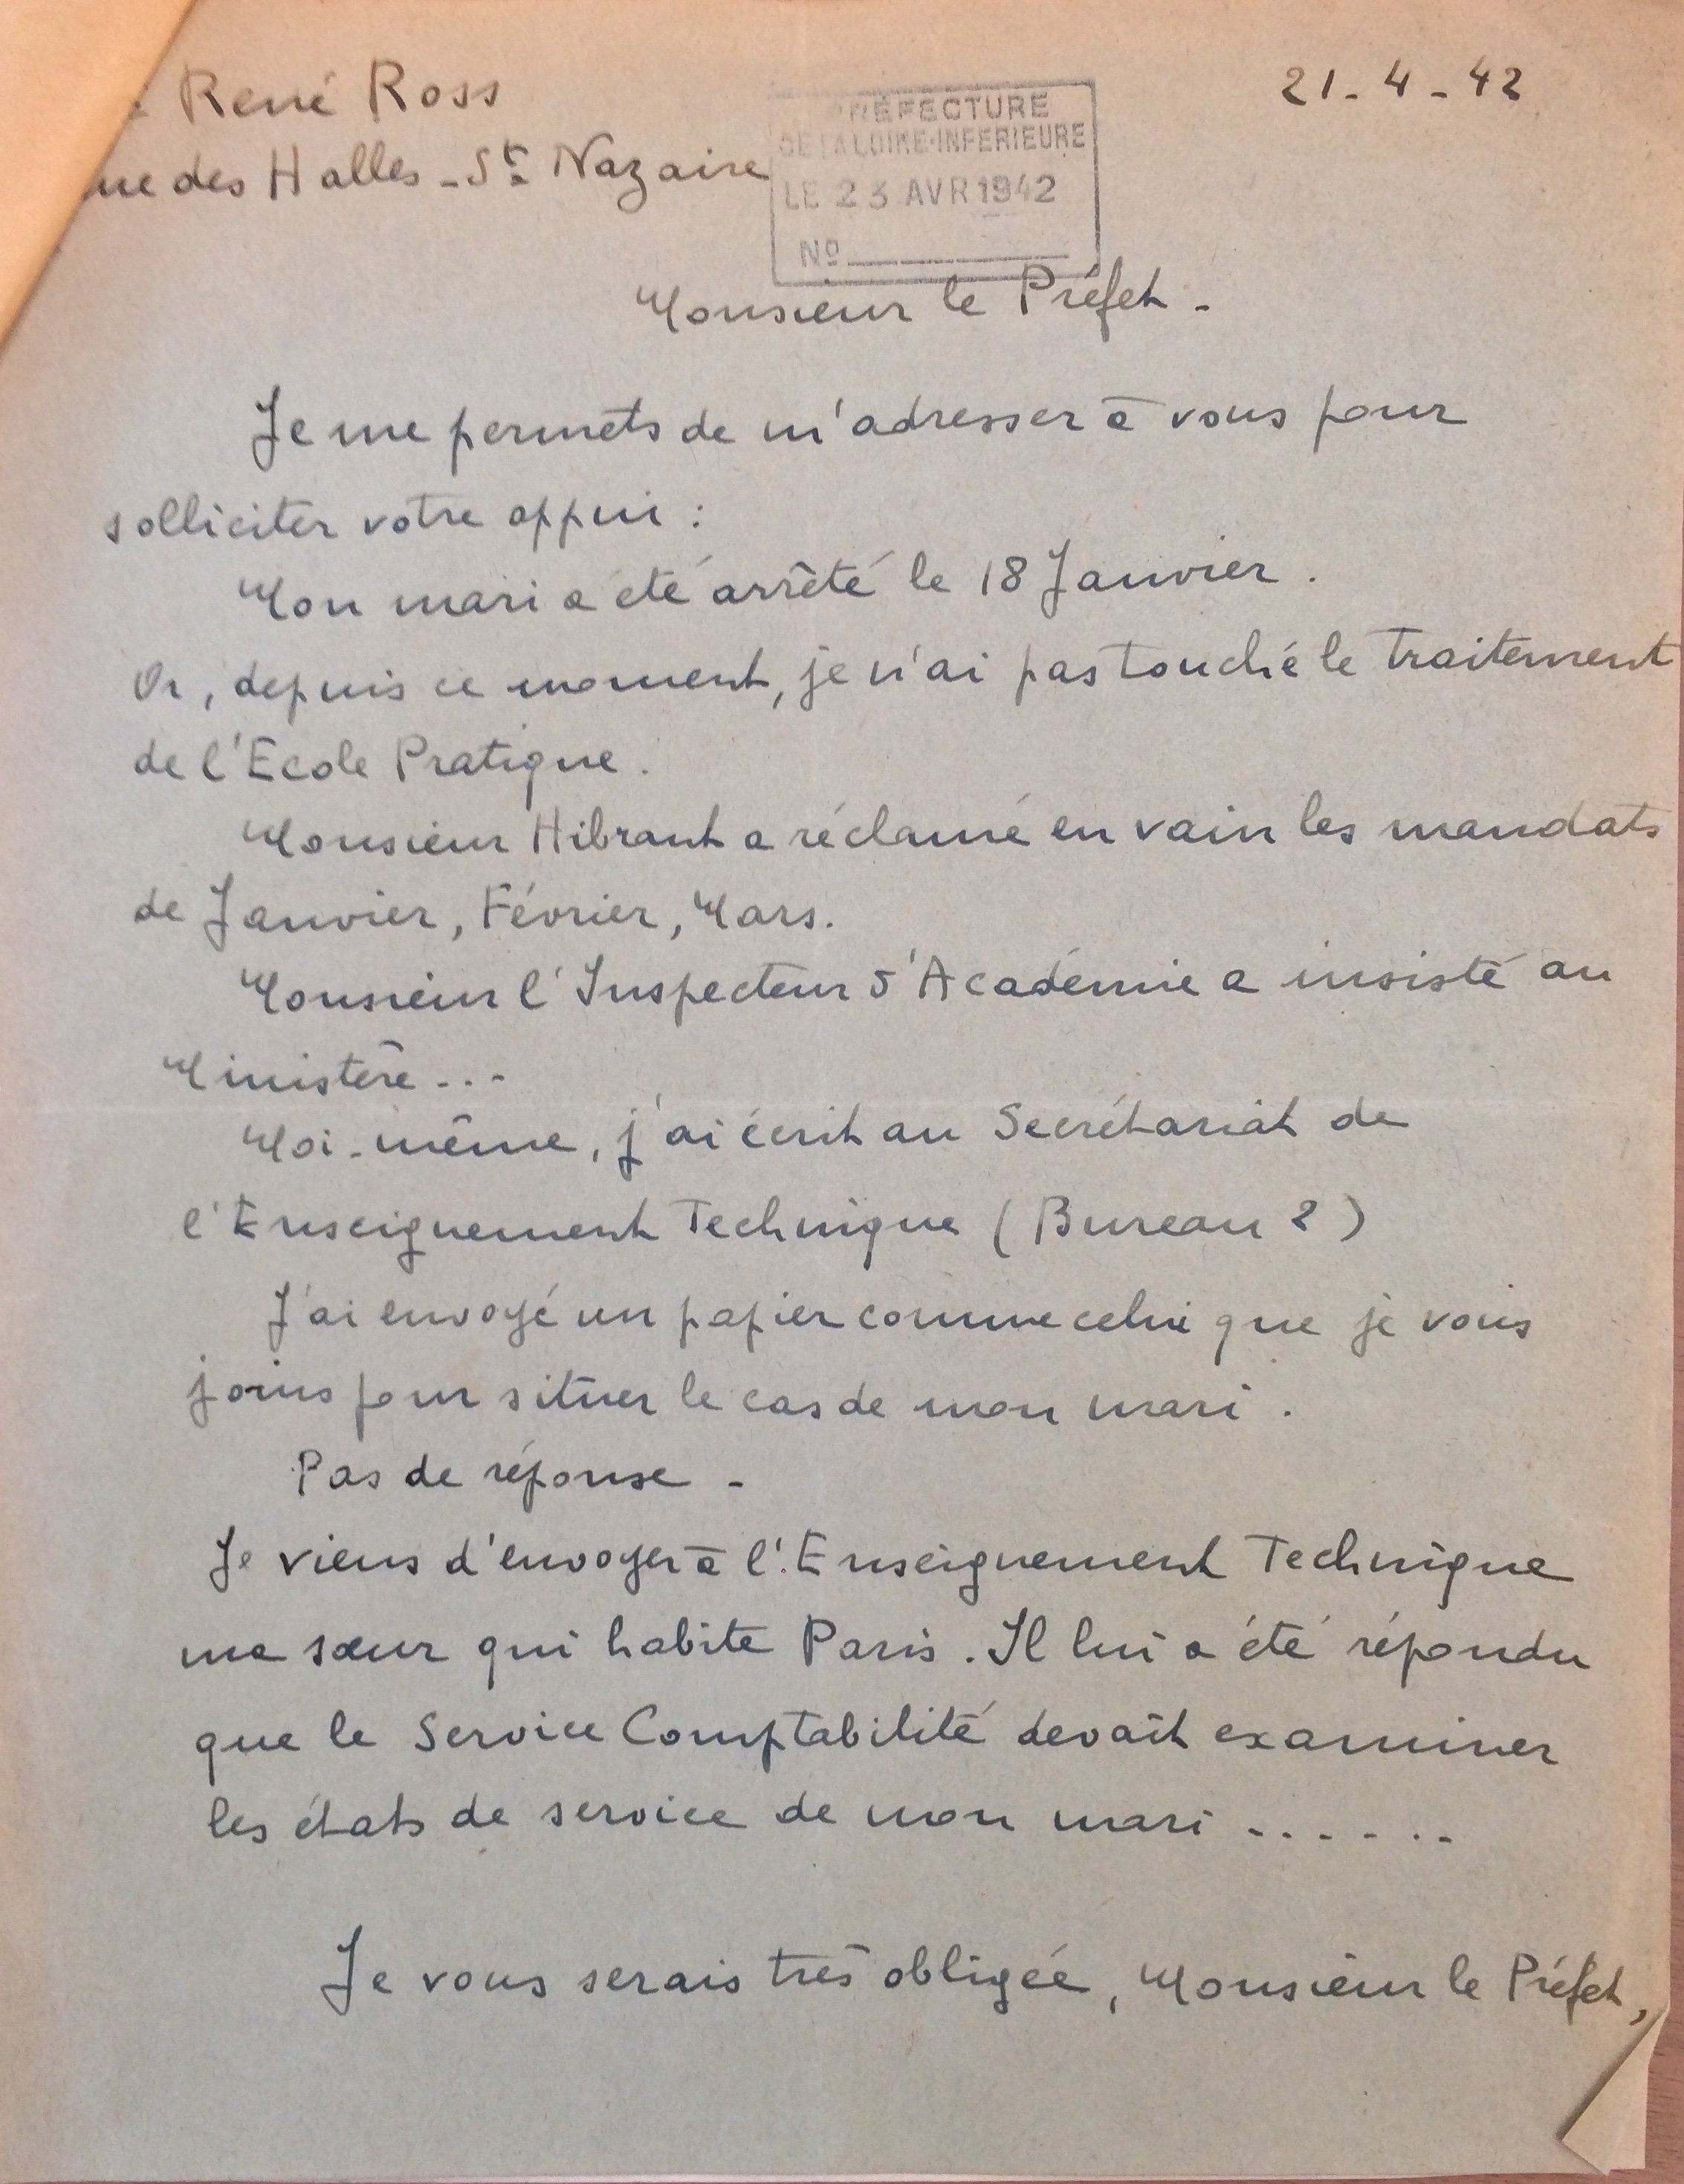 René Ross
21-4-42
ue des Halles - St Nazaire
PRÉFECTURE
DE LA LOIRE-INFERIEURE
LE 23 AVR 1942
Nº
Monsieur le Préfet -
Je me permets de m'adresser à vous pour
solliciter votre appui :
Mon mari a été arrêté le 18 Janvier.
Or, depuis ce moment, je n'ai pas touché le traitement
de l'Ecole Pratique.
Monsieur Hibrant a réclamé en vain les mandats
de Janvier, Février, Mars.
Monsieur l'Inspecteur d'Académie a insisté au
Ministère...
Moi-même, j'ai écrit au Secrétariat de
l'Enseignement Technique (Bureau 2)
J'ai envoyé un papier comme celui que je vous
joins pour situer le cas de mon mari.
Pas de réponse -
Je viens d'envoyer à l'Enseignement Technique
ma sœur qui habite Paris. Il lui a été répondu
que le Service Comptabilité devait examiner
les états de service de mon mari .......
Je vous serais très obligée, Monsieur le Préfet,